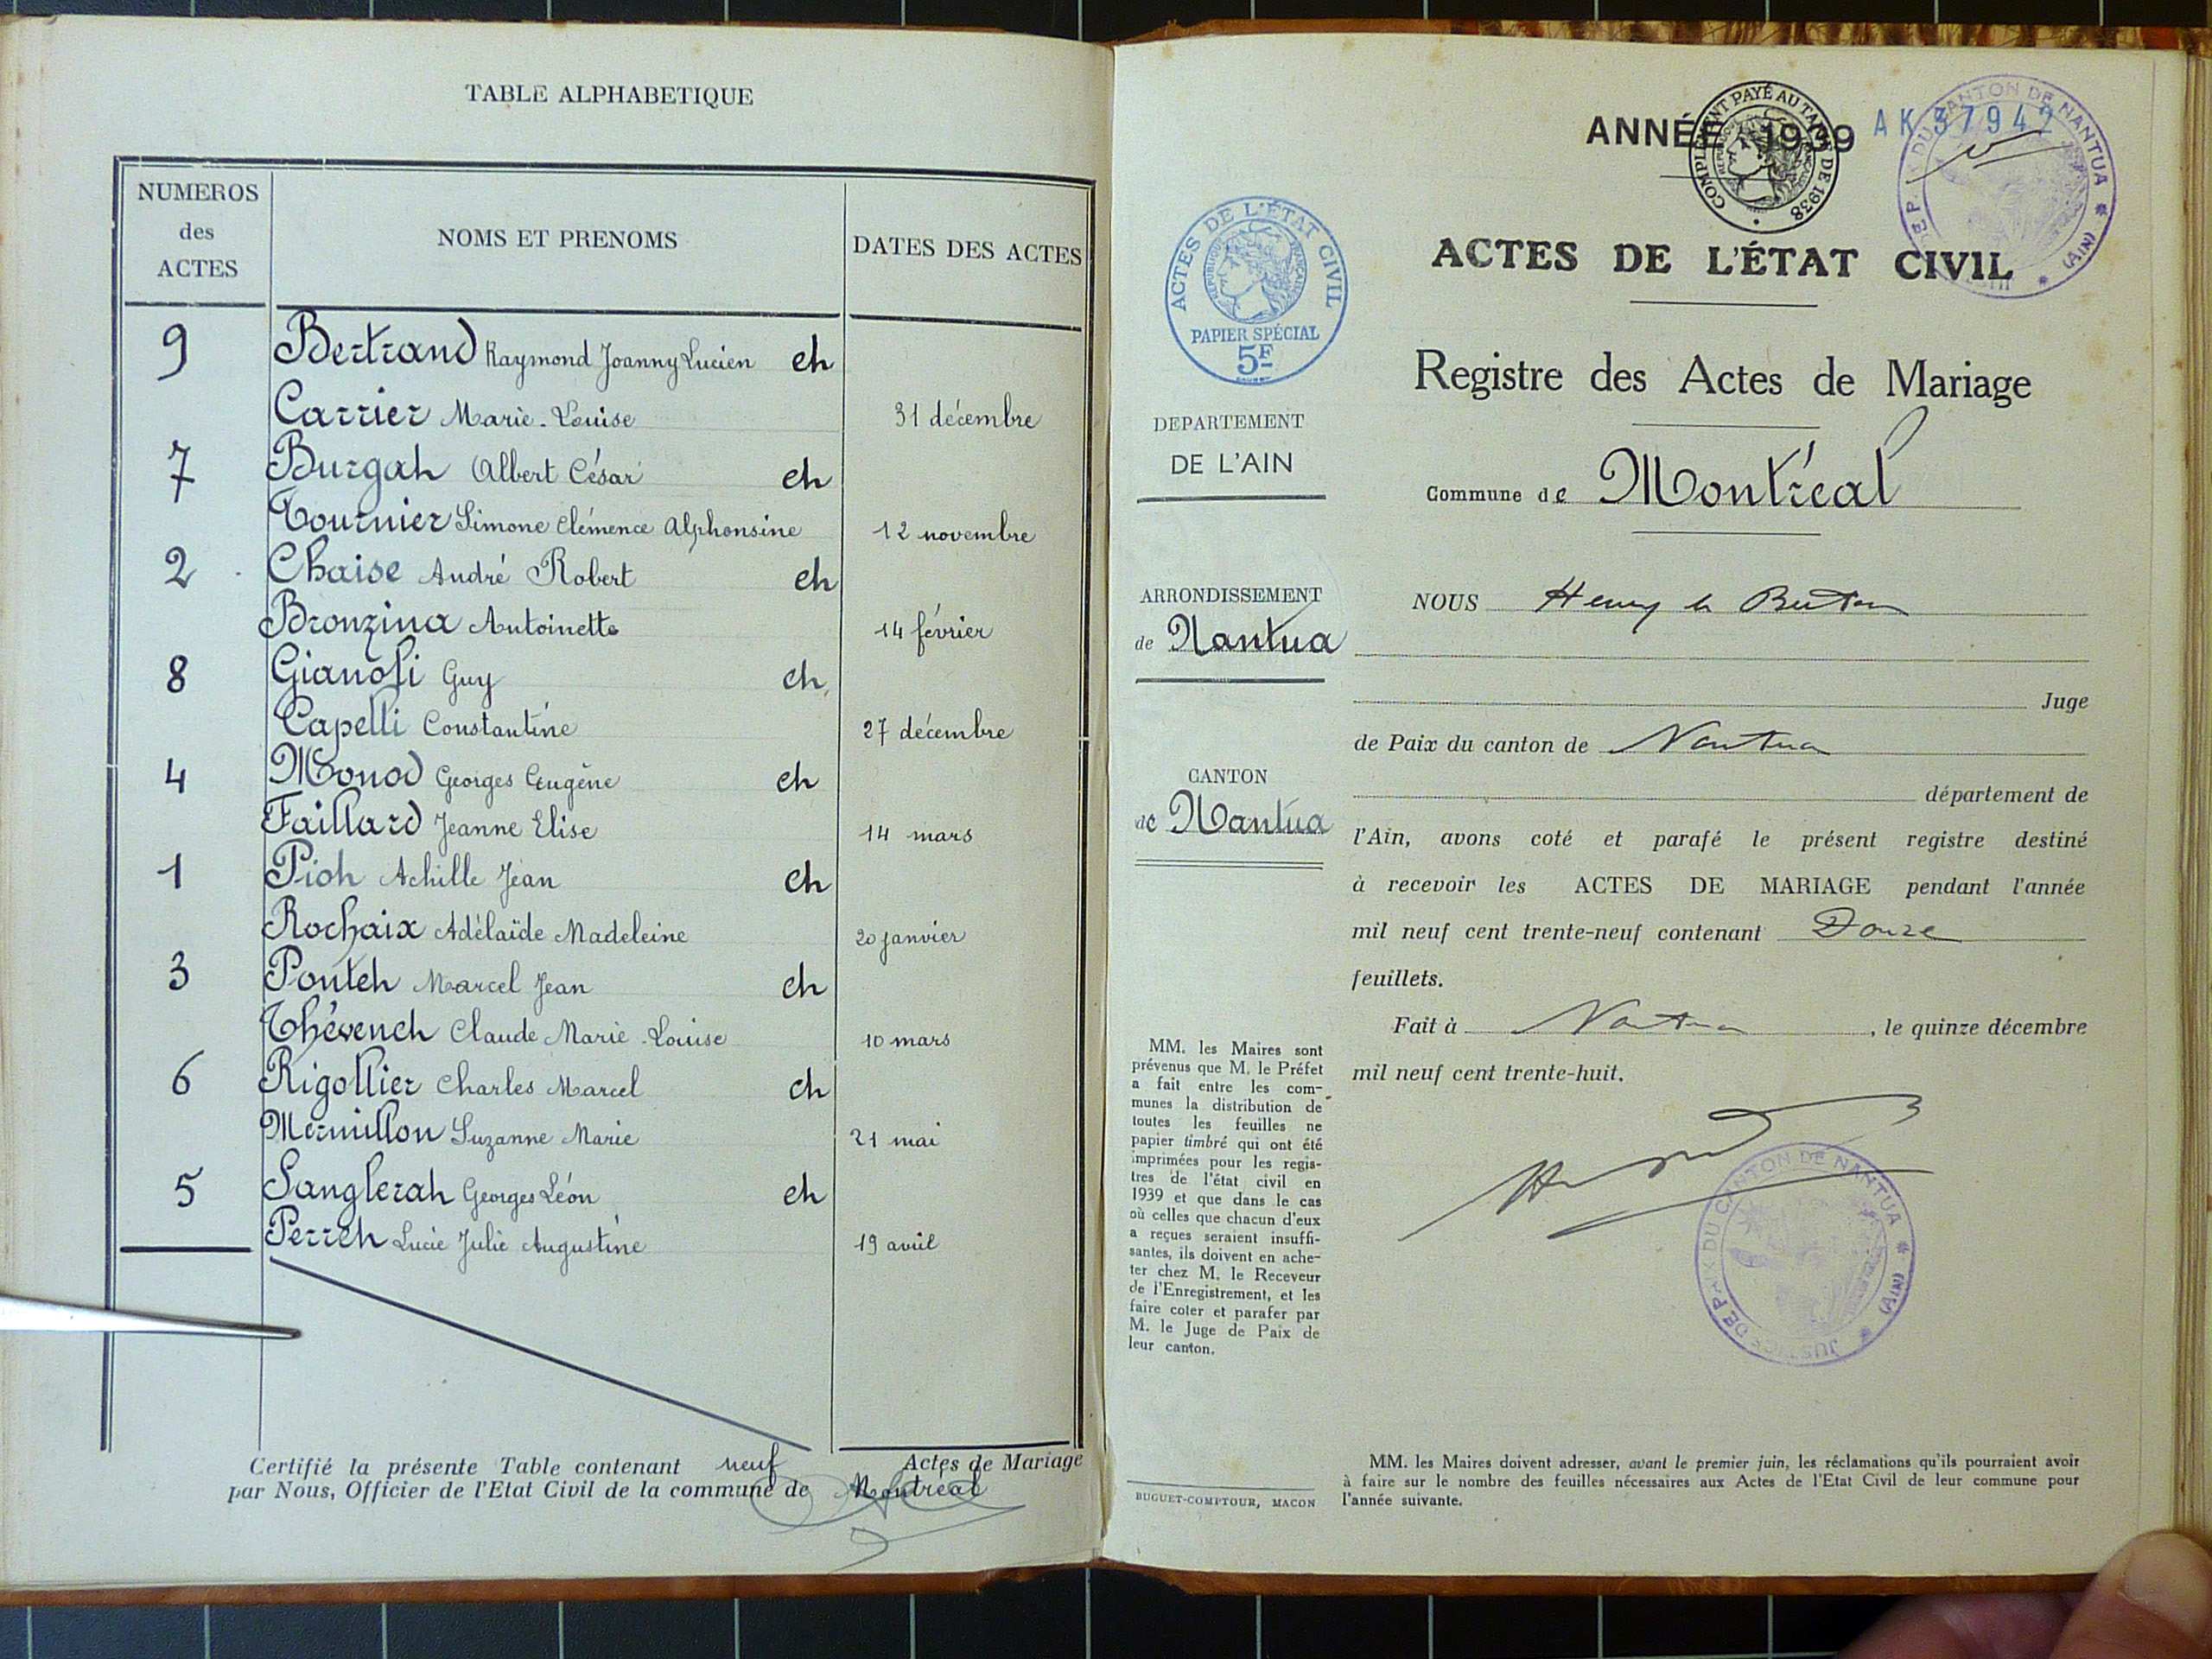 TABLE ALPHABETIQUE
NUMEROS
des
ACTES
NOMS ET PRENOMS
DATES DES ACTES
9 Bertrand Raymond Joanny Lucien et
Carrier Marie-Louise 31 décembre
7 Burgat Albert César et
Tournier Simone Clémence Alphonsine 12 novembre
2 Chaise André Robert et
Bronzina Antoinette 14 février
8 Gianoli Guy et
Capelli Constantine 27 décembre
4 Monod Georges Eugène et
Faillard Jeanne Elise 14 mars
1 Piot Achille Jean et
Rochaix Adélaïde Madeleine 20 janvier
3 Pontet Marcel Jean et
Thévenet Claude Marie-Louise 10 mars
6 Rigollier Charles Marcel et
Mermillon Suzanne Marie 21 mai
5 Sanglerat Georges Léon et
Perret Lucie Julie Augustine 19 avril
Certifié la présente Table contenant neuf Actes de Mariage
par Nous, Officier de l'Etat Civil de la commune de Montréal
ANNÉE 1939
AK 37942
COMPLÉMENT PAYÉ AU TARIF DE 1938
CANTON DE NANTUA (AIN)
ACTES DE L'ÉTAT CIVIL
RÉPUBLIQUE FRANÇAISE
PAPIER SPÉCIAL
5F
ACTES DE L'ÉTAT CIVIL
Registre des Actes de Mariage
Commune de Montréal
DEPARTEMENT
DE L'AIN
ARRONDISSEMENT
de Nantua
CANTON
de Nantua
MM. les Maires sont
prévenus que M. le Préfet
a fait entre les com-
munes la distribution de
toutes les feuilles ne
papier timbré qui ont été
imprimées pour les regis-
tres de l'état civil en
1939 et que dans le cas
où celles que chacun d'eux
a reçues seraient insuffi-
santes, ils doivent en ache-
ter chez M. le Receveur
de l'Enregistrement, et les
faire coter et parafer par
M. le Juge de Paix de
leur canton.
BUGUET-COMPTOUR, MACON
NOUS Henry
Juge
de Paix du canton de Nantua
département de
l'Ain, avons coté et parafé le présent registre destiné
à recevoir les ACTES DE MARIAGE pendant l'année
mil neuf cent trente-neuf contenant Douze
feuillets.
Fait à Nantua, le quinze décembre
mil neuf cent trente-huit.
JUSTICE DE PAIX DU CANTON DE NANTUA (AIN)
MM. les Maires doivent adresser, avant le premier juin, les réclamations qu'ils pourraient avoir
à faire sur le nombre des feuilles nécessaires aux Actes de l'Etat Civil de leur commune pour
l'année suivante.